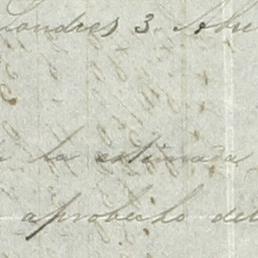 Londres 3. Abri
la estimada
aprobecho del